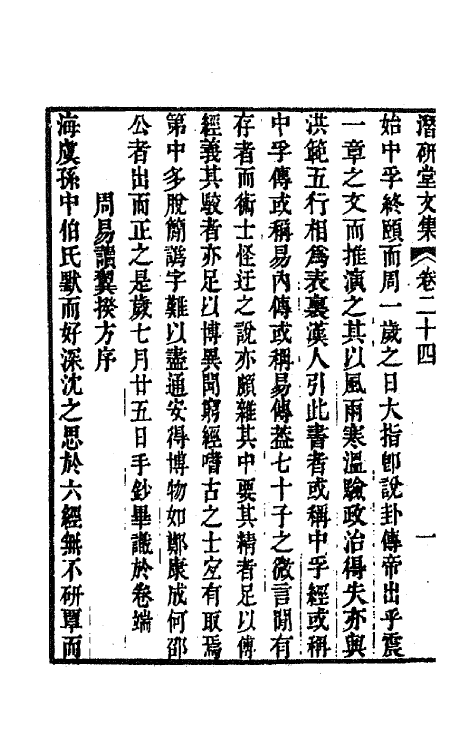 潛研堂文集 卷二十四 一
始中孚終頤而周一歲之日大指卽說卦傳帝出乎震
一章之文而推演之其以風雨寒溫驗政治得失亦與
洪範五行相為表裏漢人引此書者或稱中孚經或稱
中孚傳或稱易內傳或稱易傳葢七十子之微言閒有
存者而術士怪迂之說亦頗雜其中要其精者足以傳
經義其駮者亦足以博異聞窮經嗜古之士宜有取焉
第中多脫簡譌字難以盡通安得博物如鄭康成何邵
公者出而正之是歲七月廿五日手鈔畢識於卷端
周易讀翼揆方序
海虞孫中伯氏默而好深沈之思於六經無不研覃而